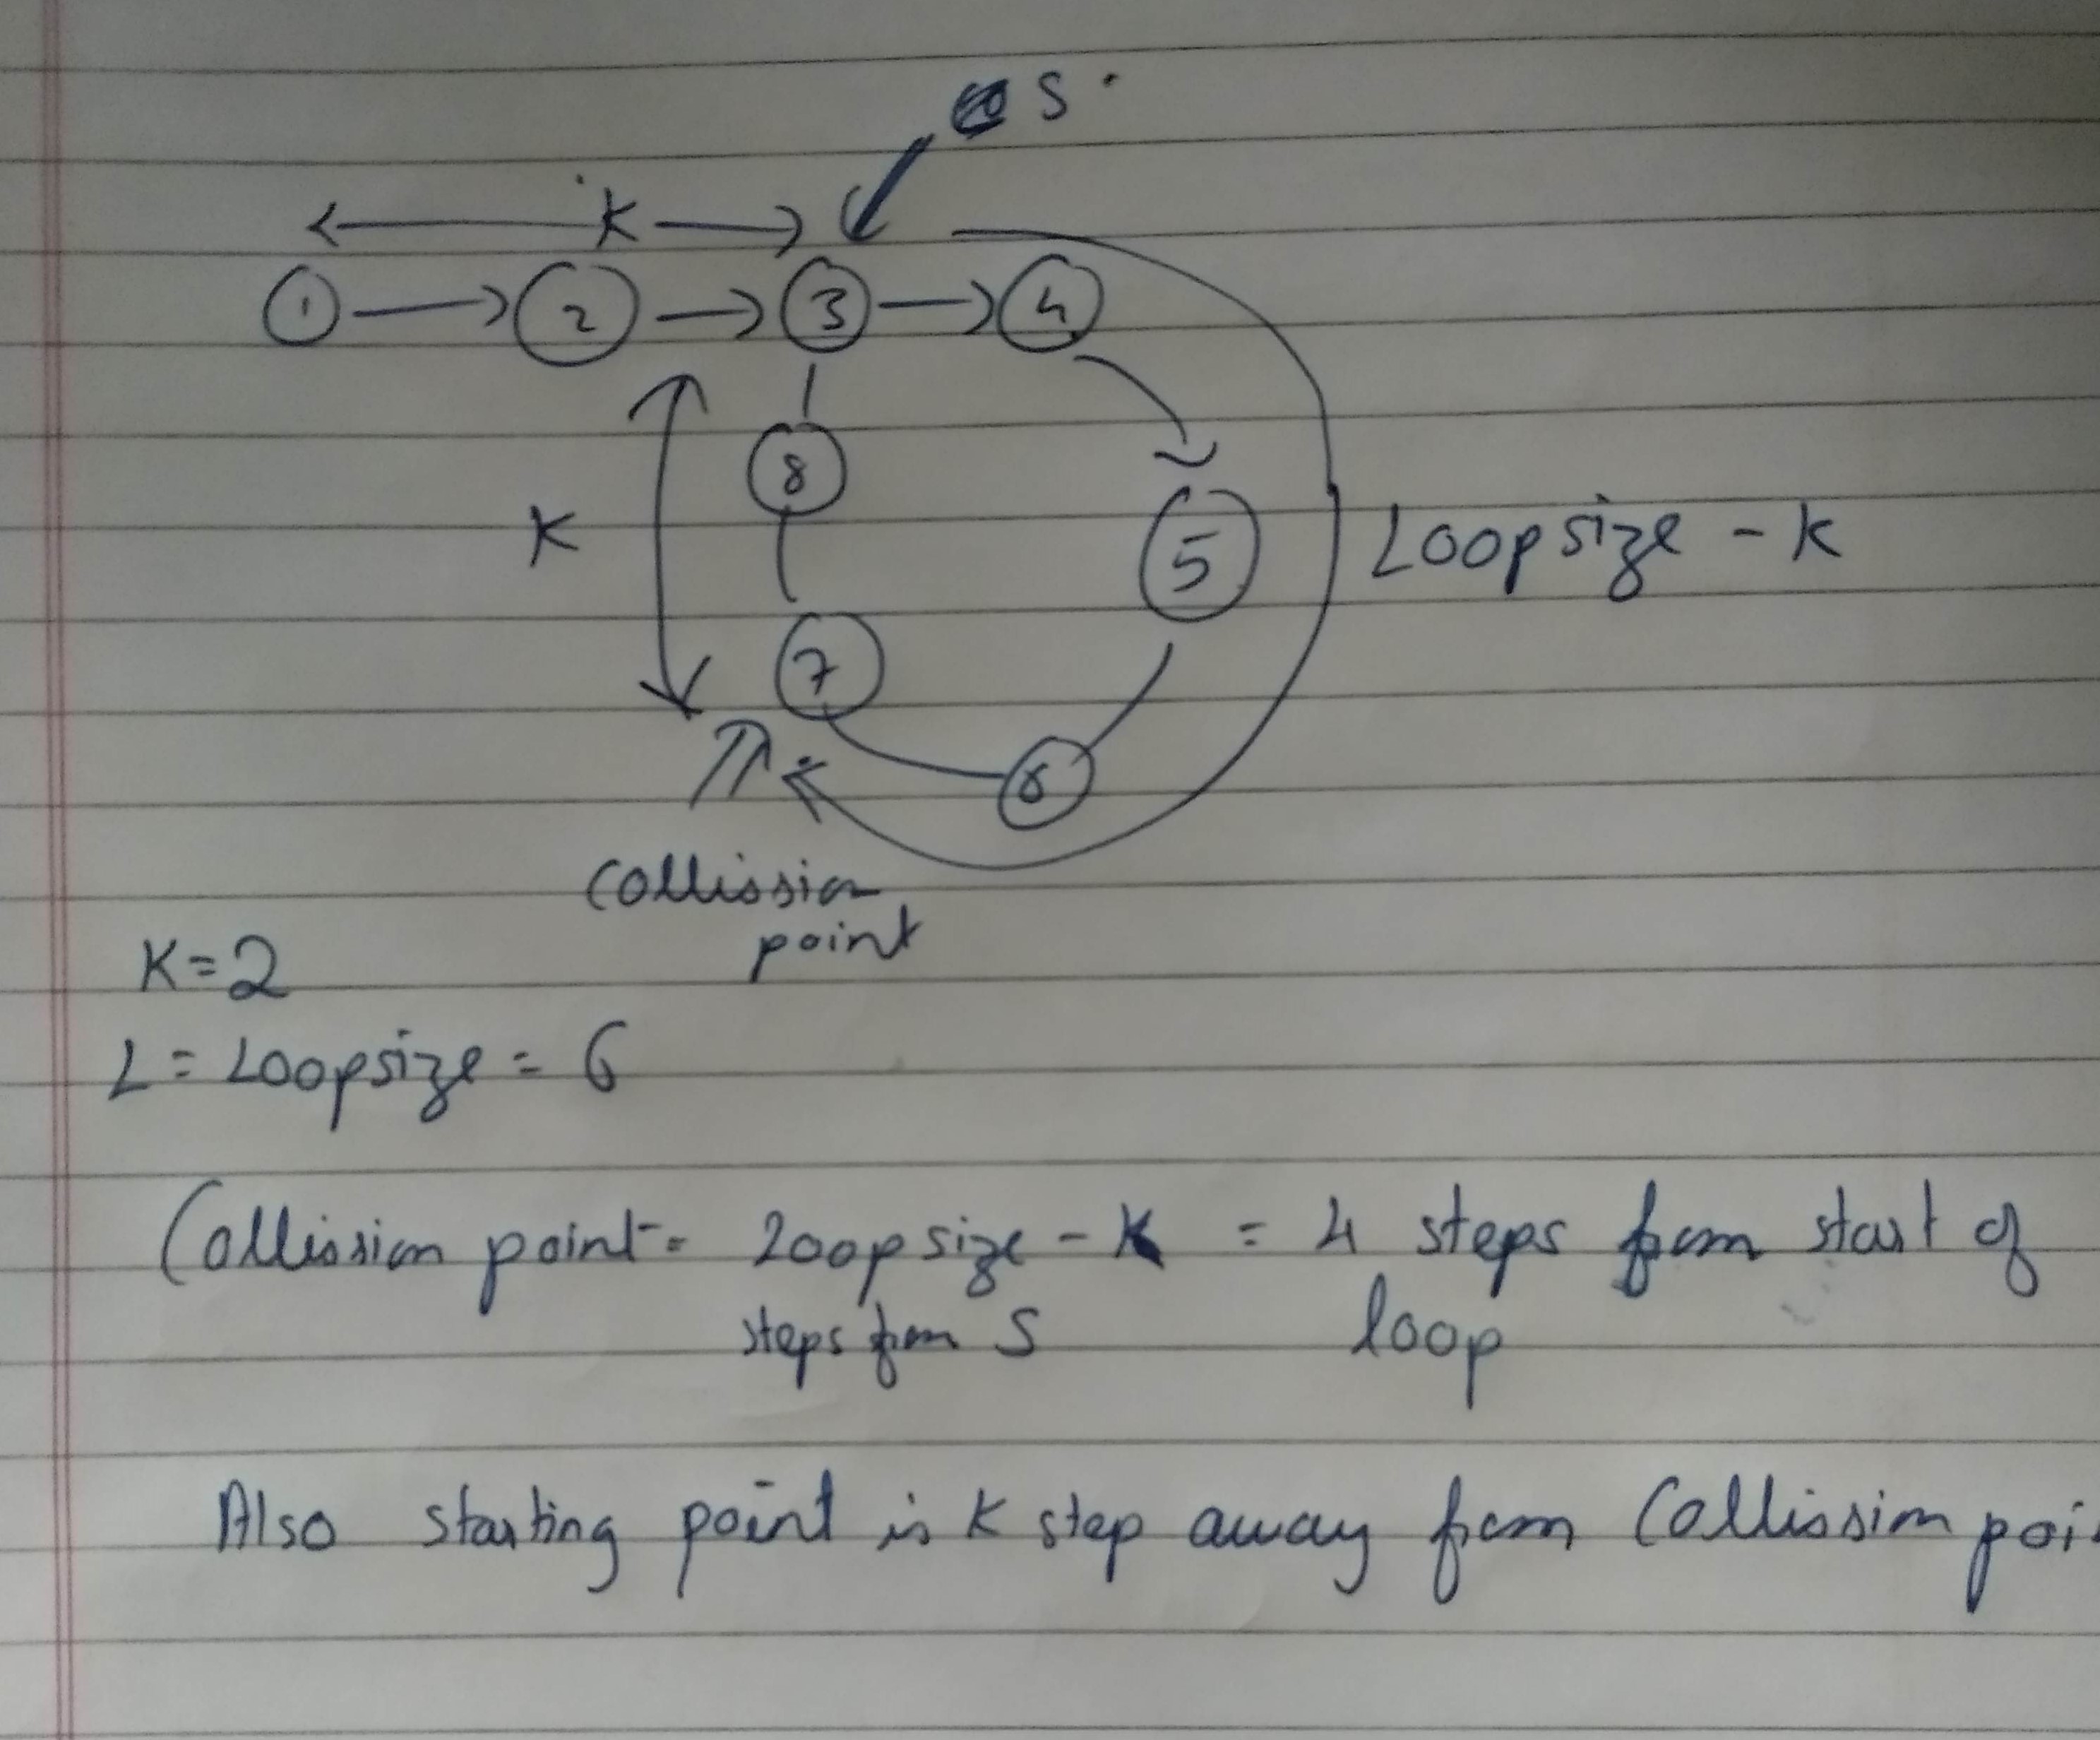 S
K
1 2 3 4
8
K
5
Loopsize - K
7
6
Collission
point
K=2
L= Loopsize = 6
Collission point = Loopsize - K = 4 steps from start of
steps from S loop
Also starting point is K step away from Collission poi